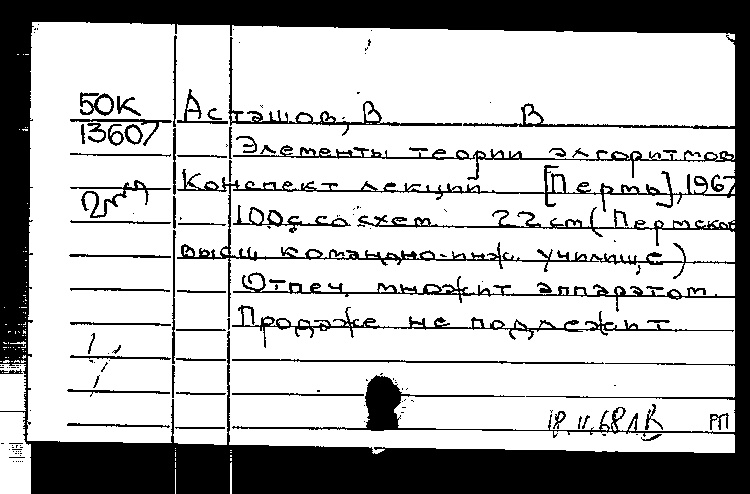 50К Асташов, В. В
13607
Элементы теории алгоритмов
Конспект лекций. [Пермь], 1967
100с со схем. 22 см (Пермское
высш командно-инж. училище)
Отпеч. множит аппаратом.
Продаже не подлежит
РП